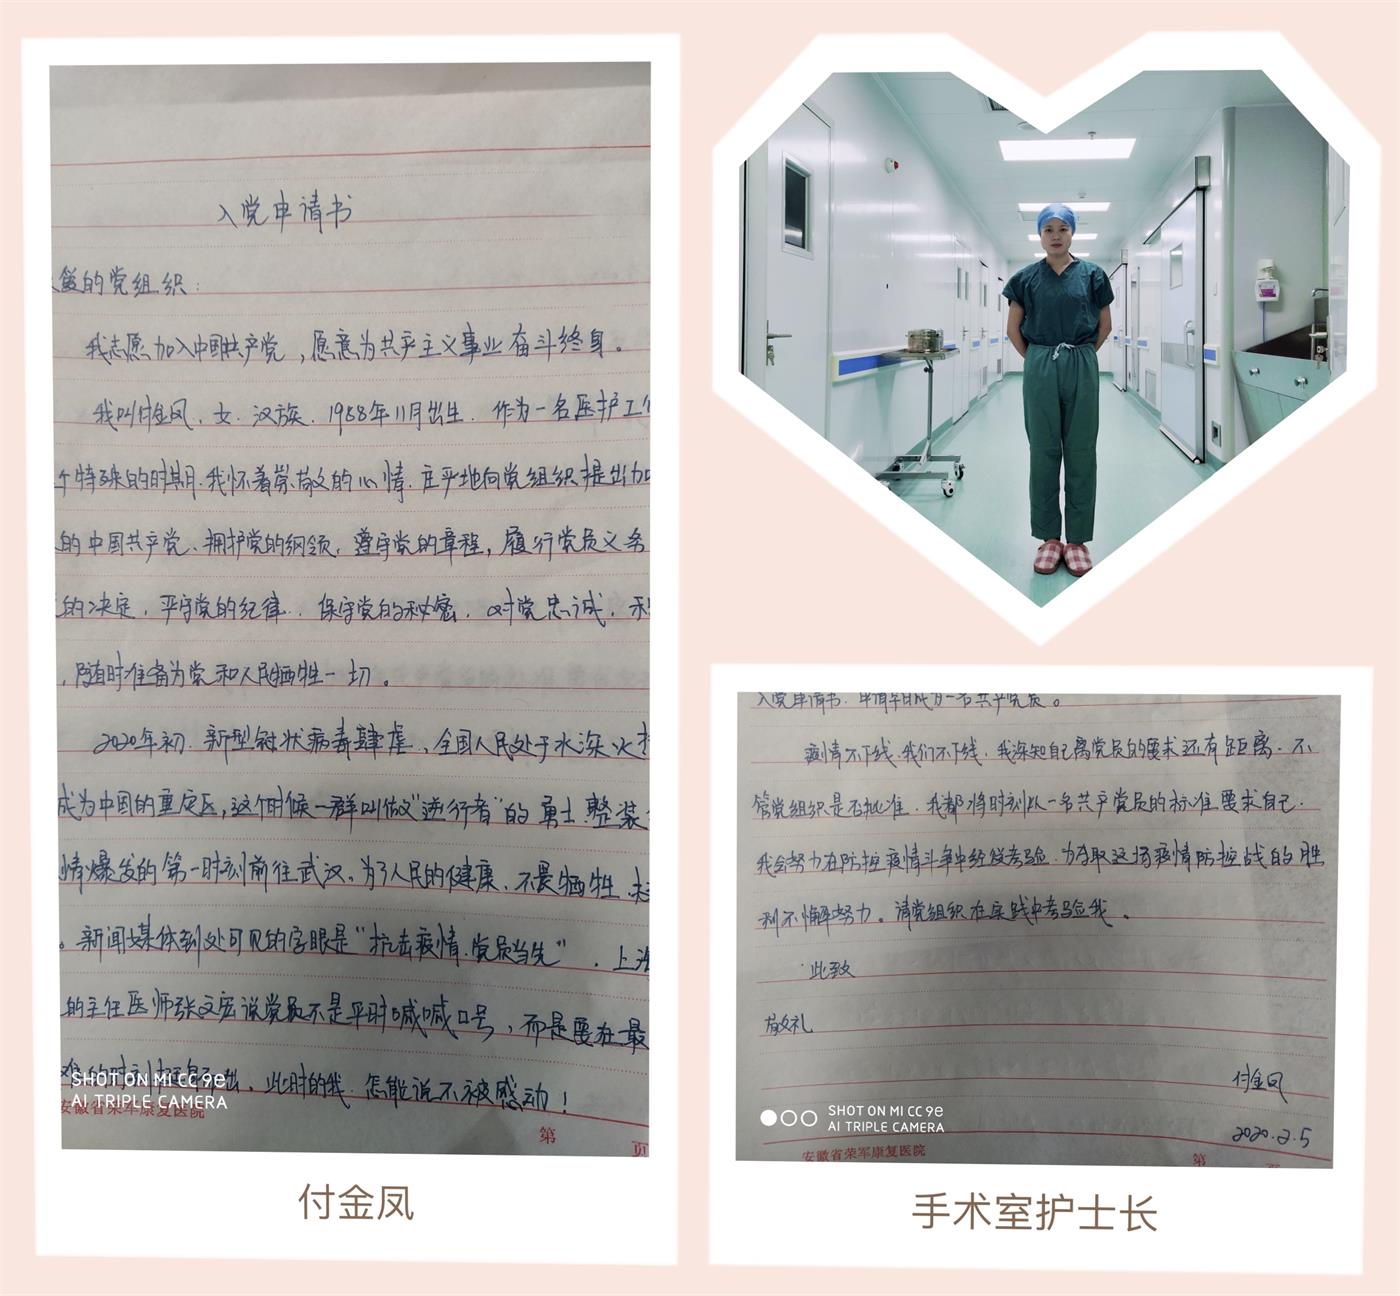 入党申请书
的党组织：
我志愿加入中国共产党，愿意为共产主义事业奋斗终身。
我叫付金凤、女、汉族、1988年11月出生、作为一名医护工
个特殊的时期、我怀着崇敬的心情、庄严地向党组织提出加
的中国共产党、拥护党的纲领、遵守党的章程，履行党员义务
的决定，严守党的纪律、保守党的秘密，对党忠诚，积
，随时准备为党和人民牺牲一切。
2020年初、新型冠状病毒肆虐、全国人民处于水深火
成为中国的重疫区，这个时候一群叫做“逆行者”的勇士整装
情爆发的第一时刻前往武汉。为了人民的健康、不畏牺牲、
。新闻媒体到处可见的字眼是“抗击疫情、党员当先”、上海
的主任医师张文宏说党员不是平时喊喊口号，而是要在最
难的时刻挺身而出，此时的我、怎能说不被感动！
SHOT ON MI CC 9e
AI TRIPLE CAMERA
安徽省荣军康复医院
第 页
付金凤
入党申请书、申请早日成为一名共产党员。
疫情不下线、我们不下线，我深知自己离党员的要求还有距离、不
管党组织是否批准、我都将时刻以一名共产党员的标准要求自己、
我会努力在防控疫情斗争中经受考验、为夺取这场疫情防控战的胜
利不懈努力。请党组织在实践中考验我。
此致
敬礼
付金凤
2020.2.5
SHOT ON MI CC 9e
AI TRIPLE CAMERA
安徽省荣军康复医院
第 页
手术室护士长